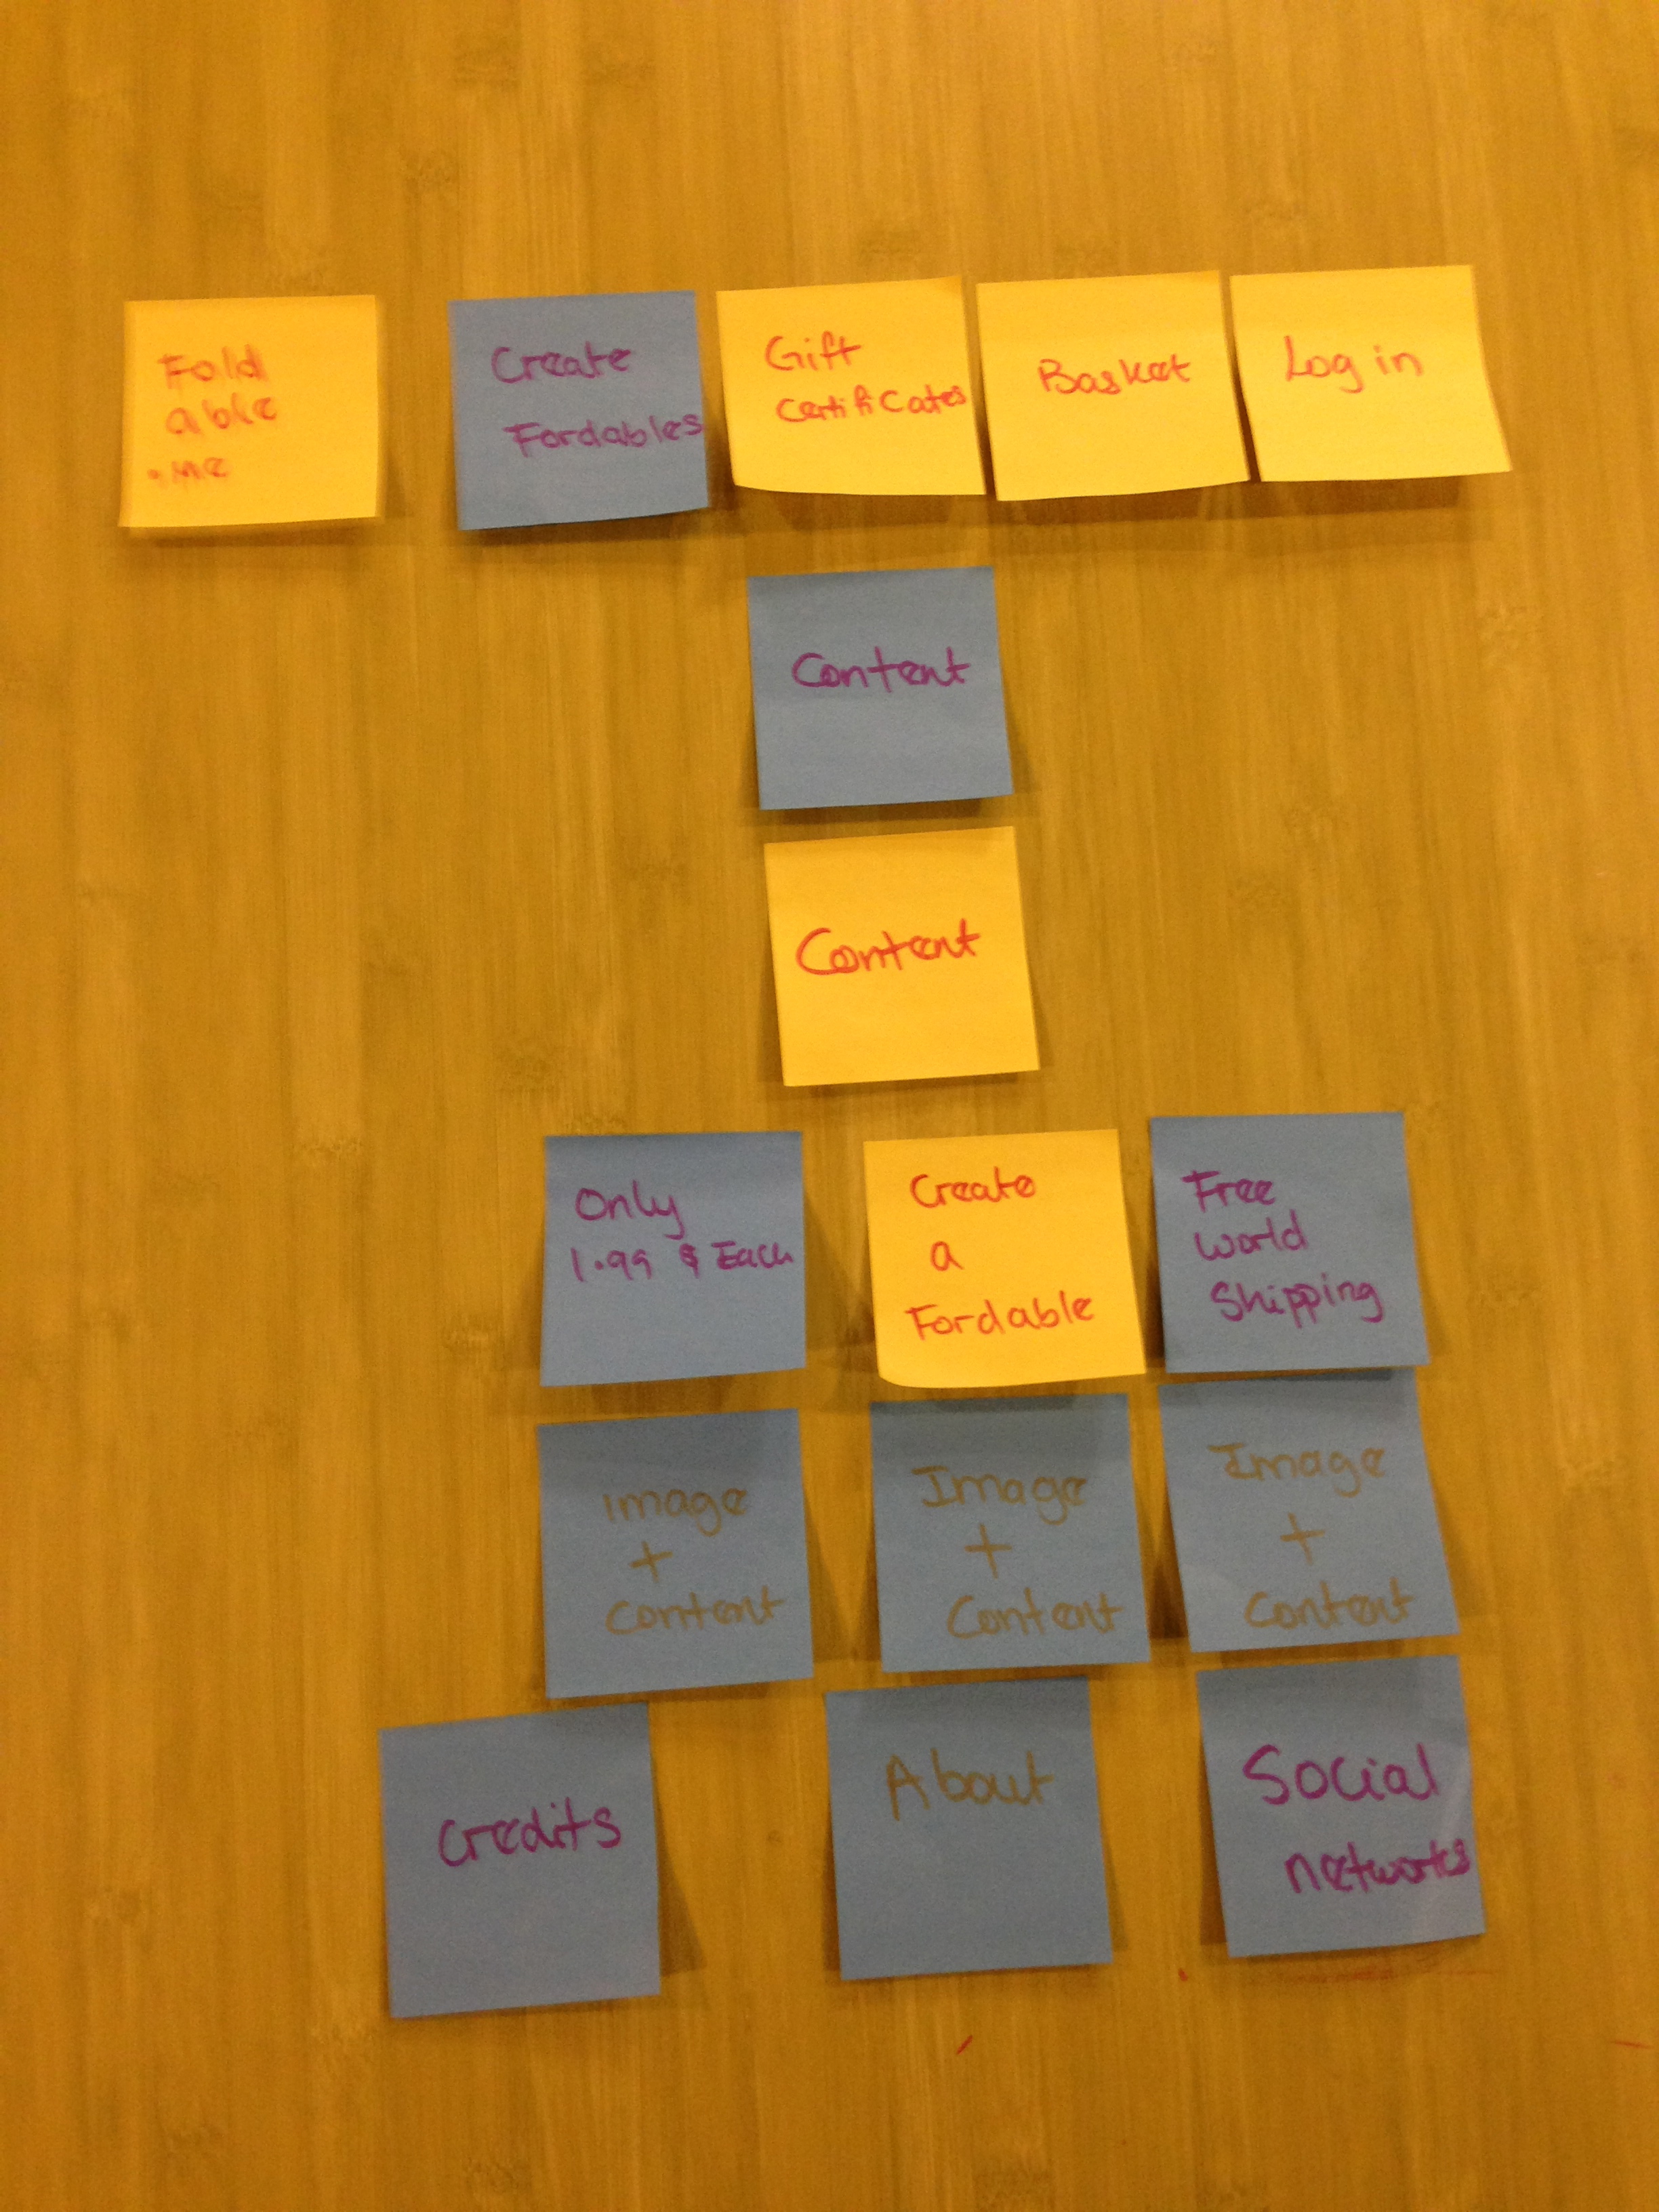 Fold
able
.me
Create
Fordables
Gift
Certificates
Basket
Log in
Content
Content
Only
1.99 $ Each
Create
a
Fordable
Free
World
Shipping
image
+
content
Image
+
Content
Image
+
Content
Credits
About
Social
networks